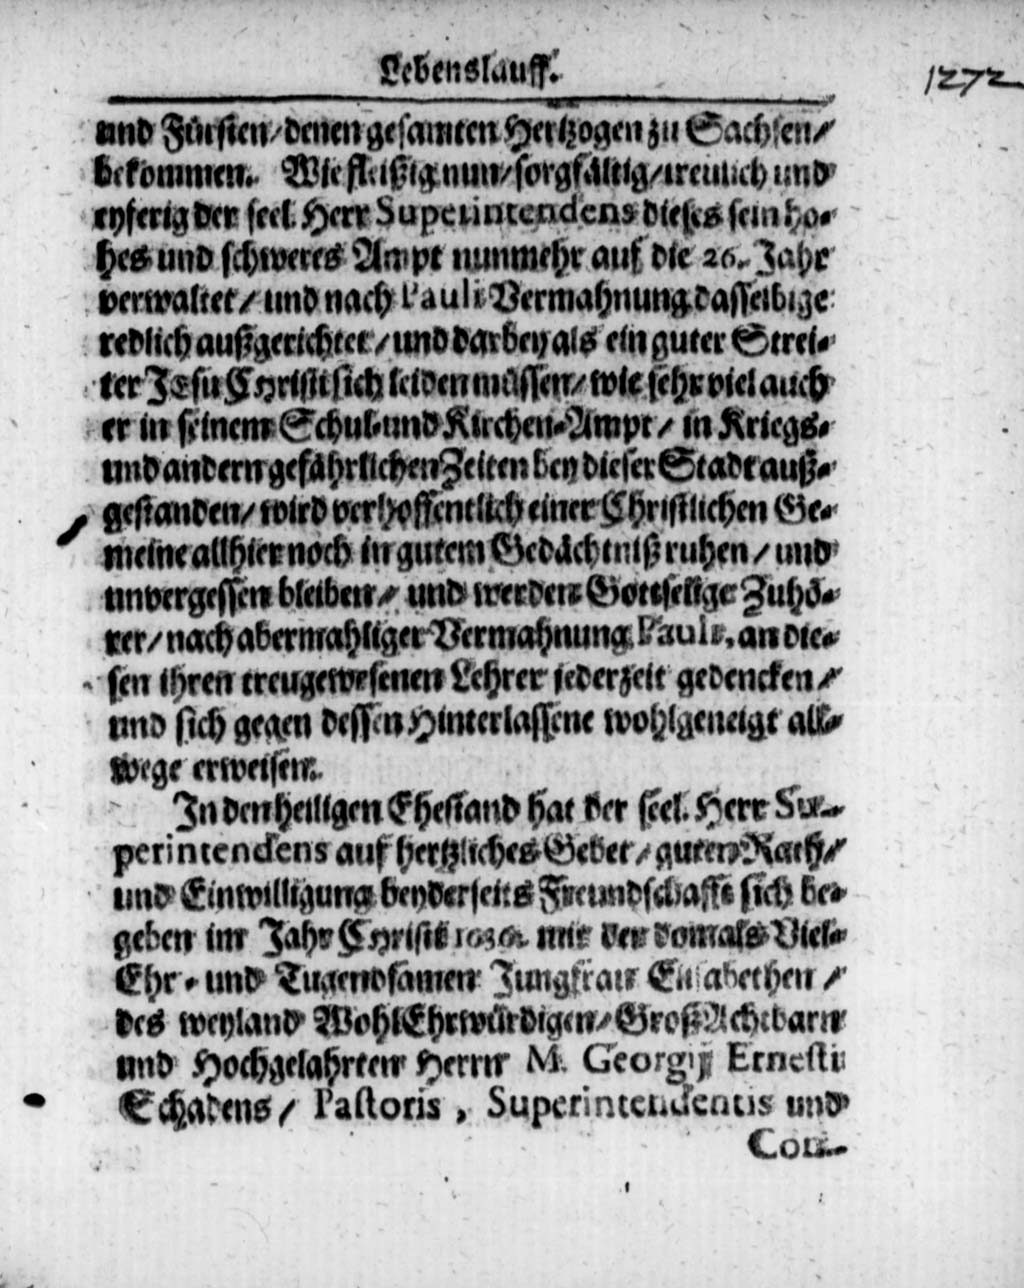 Lebenslauff.
1272
und Fürsten/denen gesamten Hertzogen zu Sachsen/
bekommen. Wie fleißig nun/sorgfältig/treulich und
eyferig der seel. Herr Superintendens dieses sein ho-
hes und schweres Ampt nunmehr auf die 26. Jahr
verwaltet/und nach Pauli Vermahnung dasselbige
redlich außgerichtet/und darbey als ein guter Strei-
ter JEsu CHristi sich leiden müssen/wie sehr viel auch
er in seinem Schul-und Kirchen-Ampt/in Kriegs-
und andern gefährlichen Zeiten bey dieser Stadt auß-
gestanden/wird verhoffentlich einer Christlichen Ge-
meine allhier noch in gutem Gedächtniß ruhen/und
unvergessen bleiben/und werden Gottselige Zuhö-
rer/nach abermahliger Vermahnung Pauli, an die-
sen ihren treugewesenen Lehrer jederzeit gedencken/
und sich gegen dessen Hinterlassene wohlgeneigt all-
wege erweisen.
In den heiligen Ehestand hat der seel. Herr Su-
perintendens auf hertzliches Gebet/guten Rath/
und Einwilligung beyderseits Freundschafft sich be-
geben im Jahr CHristi mit der domals Viel-
Ehr-und Tugendsamen Jungfrau Elisabethen/
des weyland WohlEhrwürdigen/GroßAchtbarn
und Hochgelahrten Herrn M. Georgij Ernesti
Schadens/Pastoris, Superintendentis und
Con-